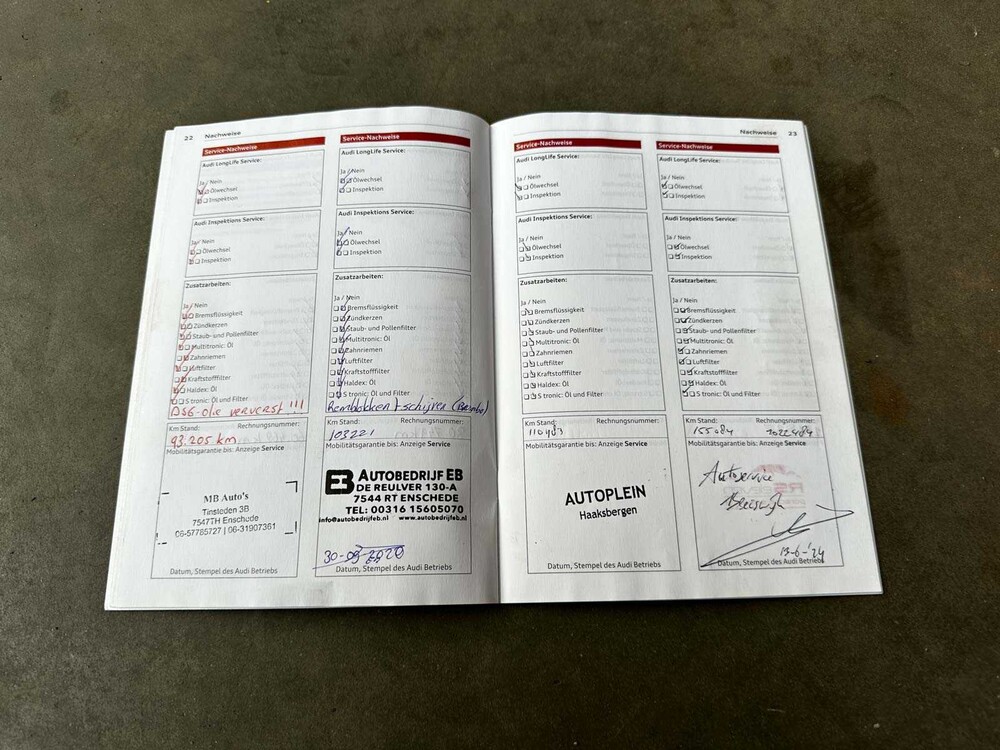 22 Nachweise
Service-Nachweise
Audi LongLife Service:
Ja / Nein
Ölwechsel
Inspektion
Audi Inspektions Service:
Ja / Nein
Ölwechsel
Inspektion
Zusatzarbeiten:
Ja / Nein
Bremsflüssigkeit
Zündkerzen
Staub- und Pollenfilter
Multitronic: Öl
Zahnriemen
Luftfilter
Kraftstofffilter
Haldex: Öl
S tronic: Öl und Filter
DSG-olie ververst !!!
Km Stand: Rechnungsnummer:
93.205 km
Mobilitätsgarantie bis: Anzeige Service
MB Auto's
Tinsteden 3B
7547TH Enschede
06-57765727 | 06-31907361
Datum, Stempel des Audi Betriebs
Service-Nachweise
Audi LongLife Service:
Ja / Nein
Ölwechsel
Inspektion
Audi Inspektions Service:
Ja / Nein
Ölwechsel
Inspektion
Zusatzarbeiten:
Ja / Nein
Bremsflüssigkeit
Zündkerzen
Staub- und Pollenfilter
Multitronic: Öl
Zahnriemen
Luftfilter
Kraftstofffilter
Haldex: Öl
S tronic: Öl und Filter
Remblokken + schijven (Brembo)
Km Stand: Rechnungsnummer:
103221
Mobilitätsgarantie bis: Anzeige Service
EB AUTOBEDRIJF EB
DE REULVER 130-A
7544 RT ENSCHEDE
TEL: 00316 15605070
info@autobedrijfeb.nl www.autobedrijfeb.nl
30-09-2020
Datum, Stempel des Audi Betriebs
Nachweise 23
Service-Nachweise
Audi LongLife Service:
Ja / Nein
Ölwechsel
Inspektion
Audi Inspektions Service:
Ja / Nein
Ölwechsel
Inspektion
Zusatzarbeiten:
Ja / Nein
Bremsflüssigkeit
Zündkerzen
Staub- und Pollenfilter
Multitronic: Öl
Zahnriemen
Luftfilter
Kraftstofffilter
Haldex: Öl
S tronic: Öl und Filter
Km Stand: Rechnungsnummer:
110483
Mobilitätsgarantie bis: Anzeige Service
AUTOPLEIN
Haaksbergen
Datum, Stempel des Audi Betriebs
Service-Nachweise
Audi LongLife Service:
Ja / Nein
Ölwechsel
Inspektion
Audi Inspektions Service:
Ja / Nein
Ölwechsel
Inspektion
Zusatzarbeiten:
Ja / Nein
Bremsflüssigkeit
Zündkerzen
Staub- und Pollenfilter
Multitronic: Öl
Zahnriemen
Luftfilter
Kraftstofffilter
Haldex: Öl
S tronic: Öl und Filter
Km Stand: Rechnungsnummer:
155084
Mobilitätsgarantie bis: Anzeige Service
RS
Autoservice
13-6-'24
Datum, Stempel des Audi Betriebs